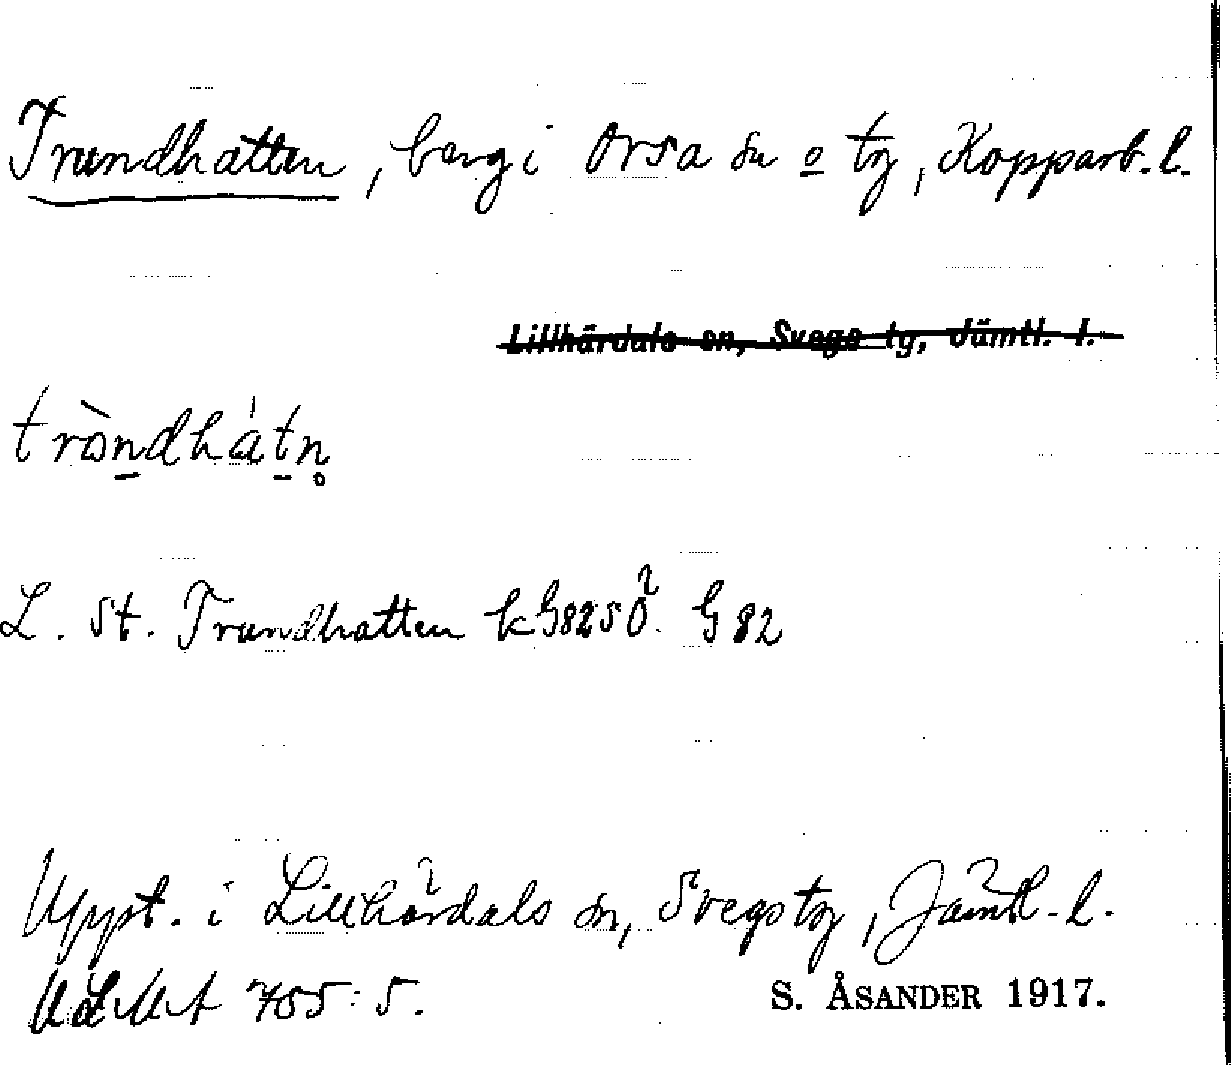 Trundhatten, berg i Orsa sn o tg, Kopparb. l.
Lillhärdals sn, Svegs tg, Jämtl. l.
tròndhátn̥
L. St. Trundhatten kG825Ö. G 82
Uppt. i Lillhärdals sn, Svegs tg, Jämtl. l.
ULMA 765:5.
S. ÅSANDER 1917.